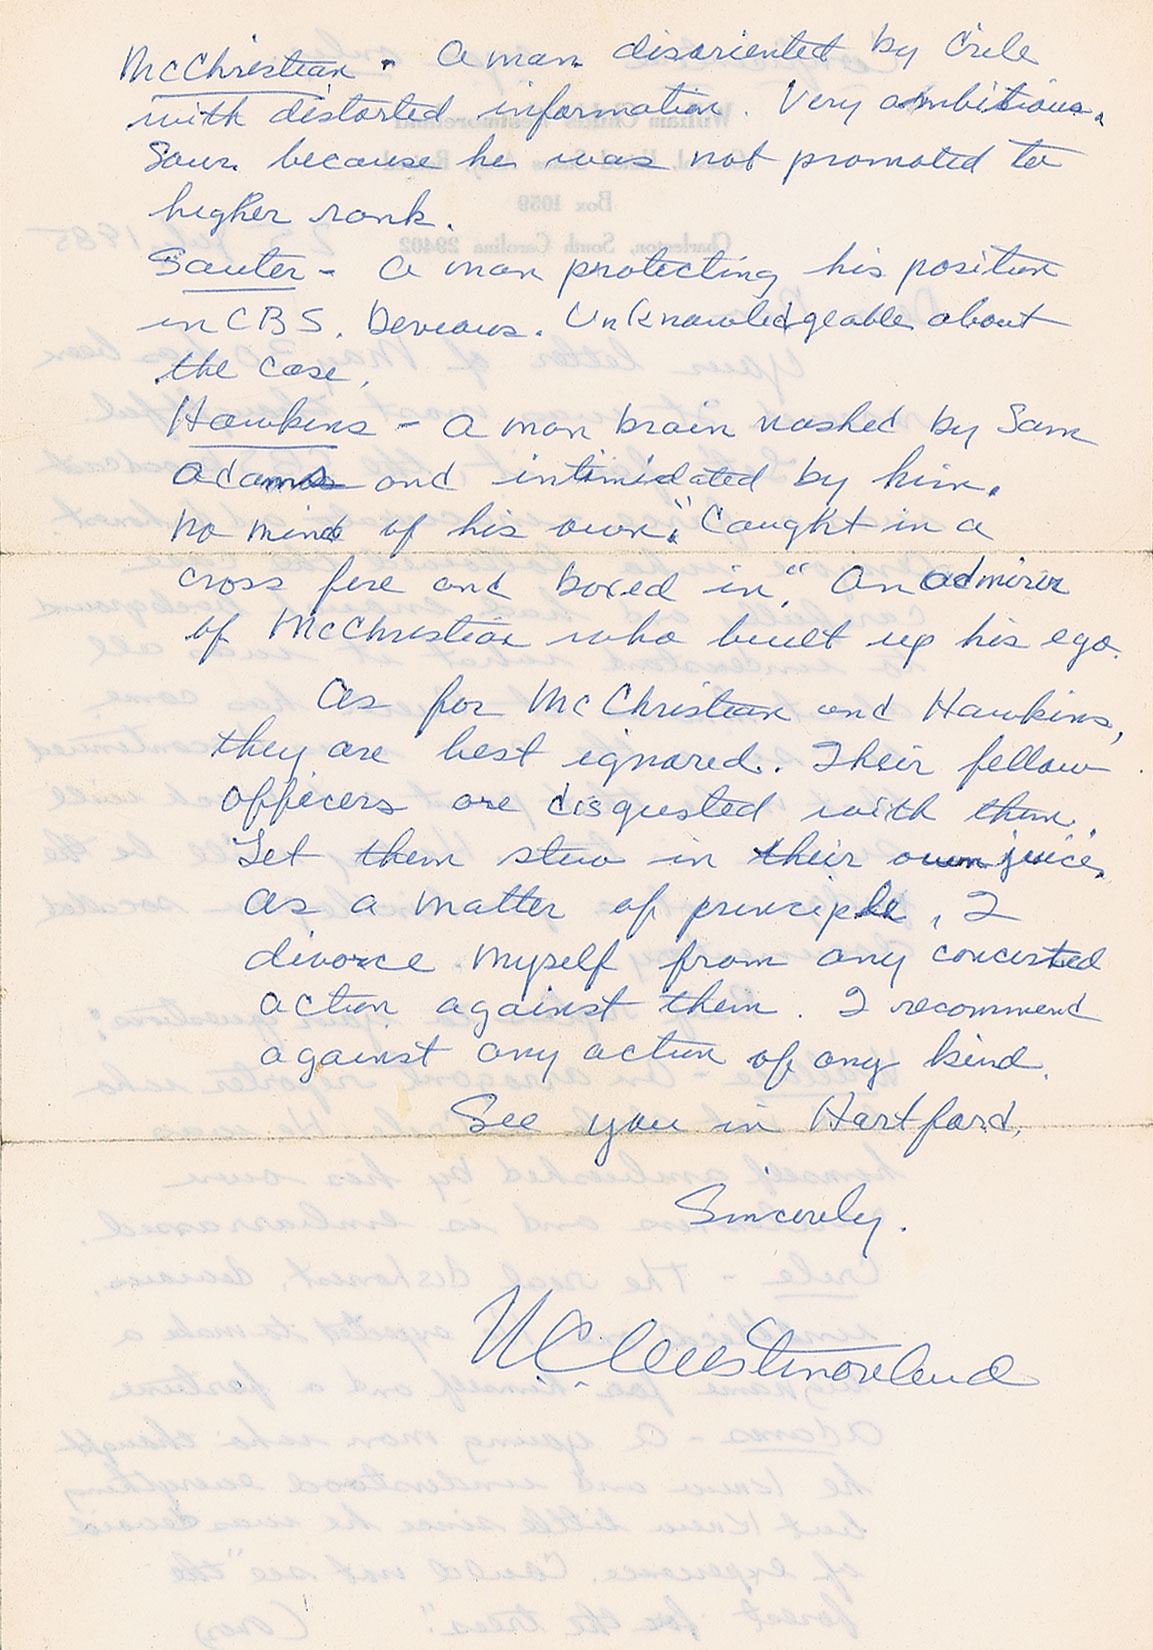 McChristian - A man disoriented by Crile
with distorted information. Very ambitious.
Sour because he was not promoted to
higher rank.
Sauter - a man protecting his position
in CBS. Devious. Unknowledgeable about
the case.
Hawkins - a man brain washed by Sam
Adams and intimidated by him.
No mind of his own. "Caught in a
cross fire and boxed in." An admirer
of McChristian who built up his ego.
As for McChristian and Hawkins,
they are best ignored. Their fellow
officers are disgusted with them.
Let them stew in their own juice.
As a matter of principle, I
divorce myself from any concerted
action against them. I recommend
against any action of any kind.
See you in Hartford.
Sincerely.
W.C. Westmoreland